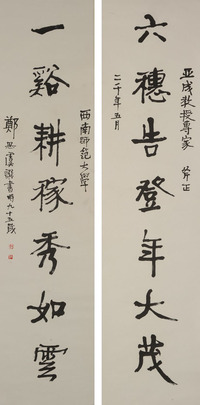 亚成教授專家 斧正
六穗告登年大茂
二千年五月
西南师范大学
一谿耕稼秀如雲
鄭思虞撰書时九十五歲